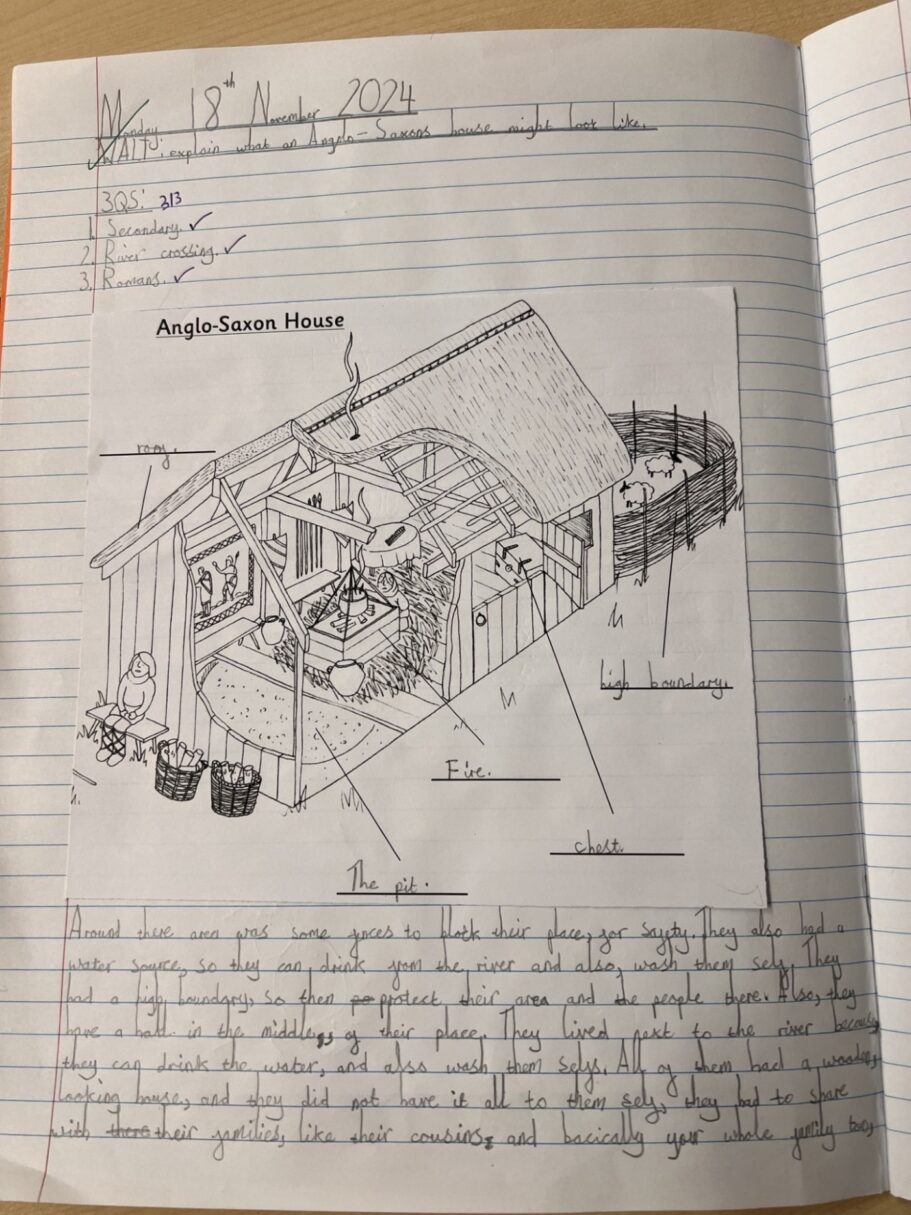 Monday 18th November 2024
WALT: explain what an Anglo-Saxons house might look like.
3QS: 3/3
1. Secondary. ✓
2. River crossing. ✓
3. Romans. ✓
Anglo-Saxon House
roof.
high boundary.
Fire.
chest.
The pit.
Around there area was some fnces to block their place, for safty. They also had a
water source, so they can drink from the river and also, wash them self. They
had a high boundary, so then protect their area and the people there. Also, they
have a hall in the middle, of their place. They lived next to the river because
they can drink the water, and also wash them selfs. All of them had a wooden,
looking house, and they did not have it all to them self, they had to share
with there their families, like their cousins, and bacically your whole family too,